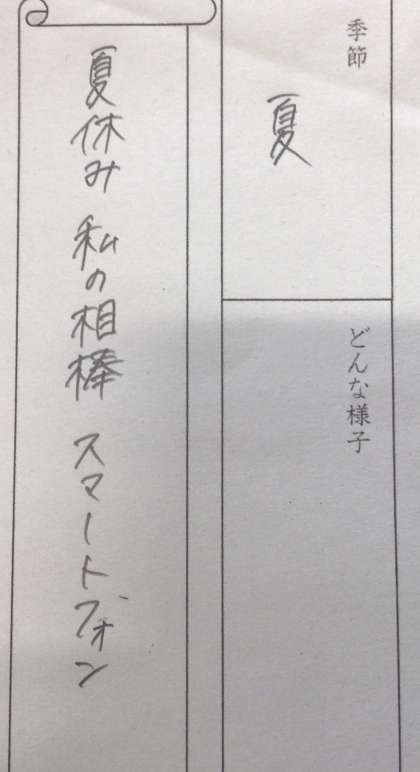 季節
夏
どんな様子
夏休み 私の相棒 スマートフォン